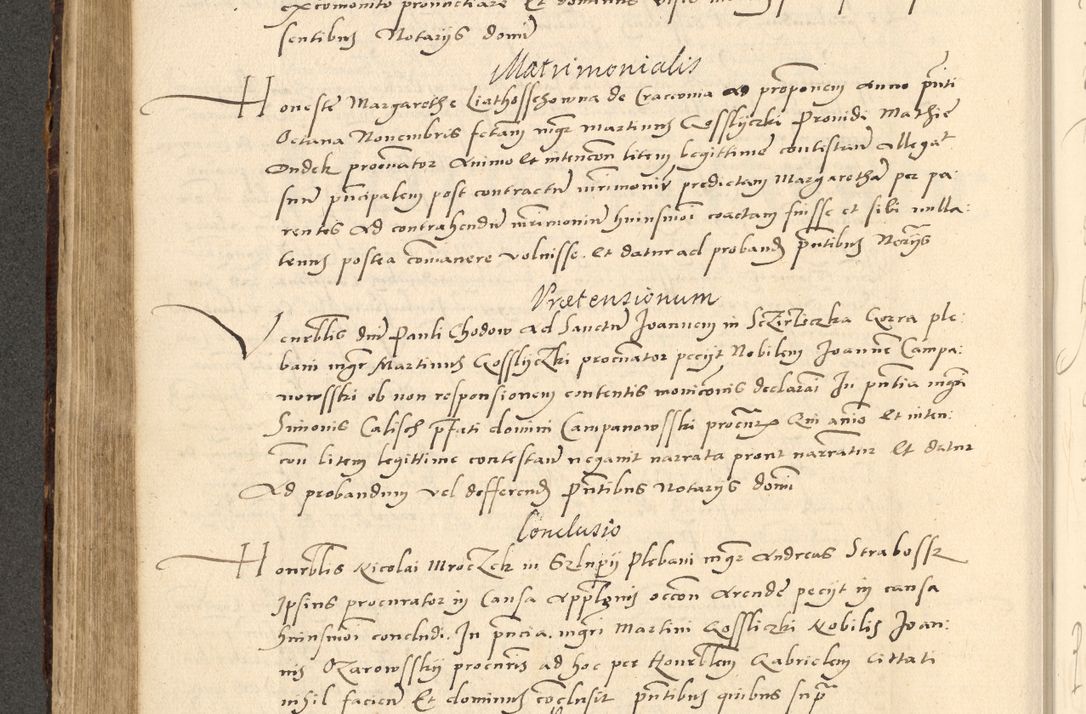 excomonito pronunctiare Et dominus
sentibus Notariis domi
Matrimonialis
Honeste Margarethe Liathosschowna de Cracconia ad proponen anno pnti
Octaua Nouembris fctam mgr martinus Gosslyczki Prouidi Mathie
Ondek procurator Animo Et intencon litem legittime contestan Allegat
suu pncipalem post contractu mrimonir predictam Margaretha per pa:
rentes Ad contrahendu mrimoniu huiusmoi coactam fuisse et sibi nulla:
tenus postea comanere voluisse. Et datur ad proband pntibus Nrijs
Pretensionum
Venrblis dni Pauli Chodow Ad Sanctu Joannem in Gorra ple:
bani mgr Martinus Gosslyczki procurator peciit Nobilem Joanne Campa:
nowsski ob non responsionem contentis monicionis declarai In pntia mgri
Simonis Calisch pfati domini Campanowsski procur Qui anio Et inten:
con litem legittime contestan negauit narrata prout narrantur Et datur
Ad probandum vel defferend pntibus Notariis domi
Conclusio
Honrblis Nicolai Mroczek in Plebani mgr Andreas Strabossk
Ipsius procurator in Causa appllonis occon Arende peciit in causa
huiusmoi concludi. In pncia. mgri Martini Gossliczki Nobilis Joan:
nis Ozarowsskij procuris ad hoc per Honrblem Gabrielem Cittati
nihil facien Et dominus coclusit pntibus quibus supra